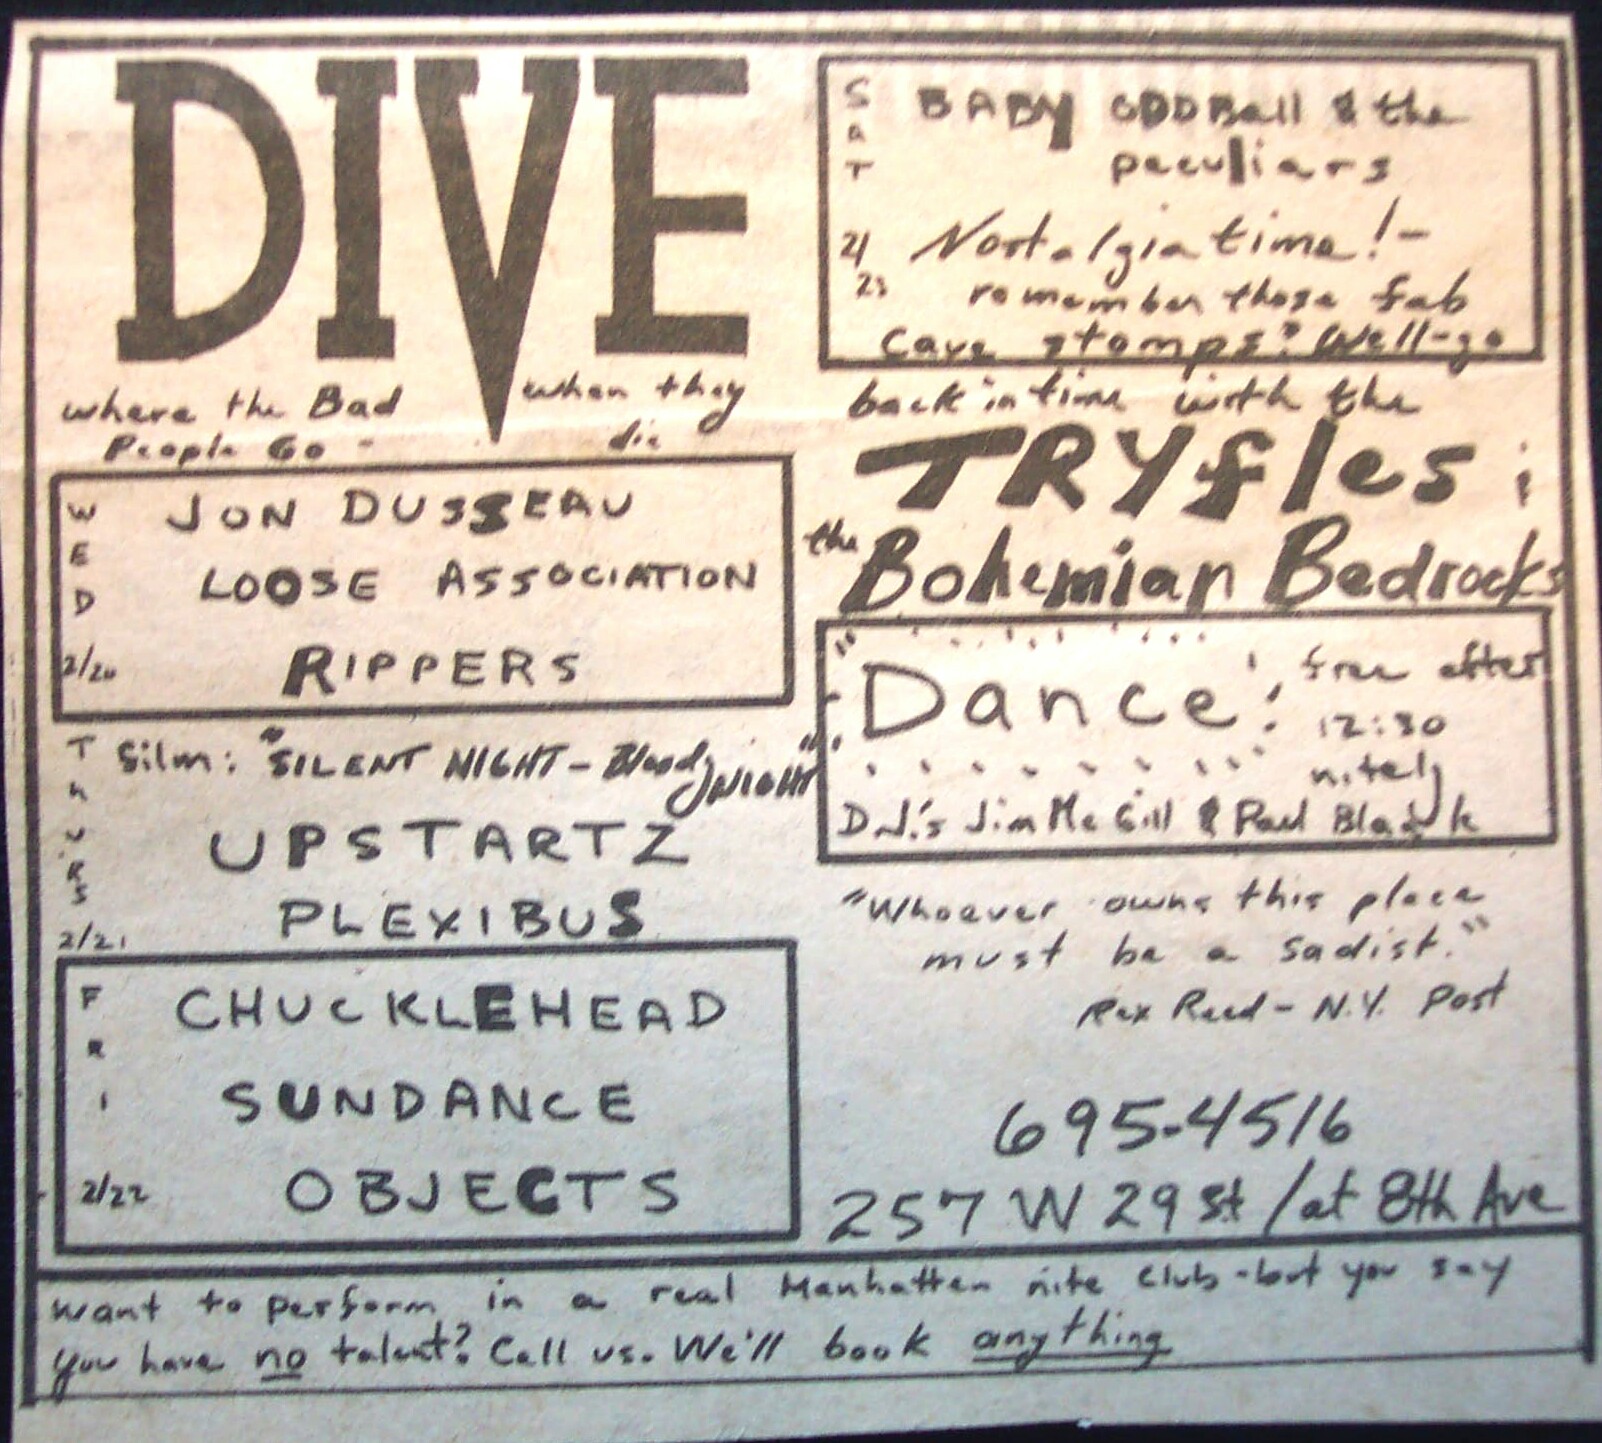 DIVE
where the Bad
People Go -
when they
die
WED
2/20
JON DUSSEAU
LOOSE ASSOCIATION
RIPPERS
THURS
2/21
film: "SILENT NIGHT - Bloody NIGHT"
UPSTARTZ
PLEXIBUS
FRI
2/22
CHUCKLEHEAD
SUNDANCE
OBJECTS
SAT
2/
23
BABY ODDBall & the
peculiars
Nostalgia time! -
remember those fab
Cave stomps? Well-go
back in time with the
TRYfles ;
the Bohemian Bedrocks
"Dance! free after
12:30
nitely
D.J.'s Jim McGill & Paul
"Whoever owns this place
must be a sadist."
Rex Reed - N.Y. Post
695-4516
257 W 29 St / at 8th Ave
Want to perform in a real Manhatten nite Club - but you say
you have no talent? Call us. We'll book anything